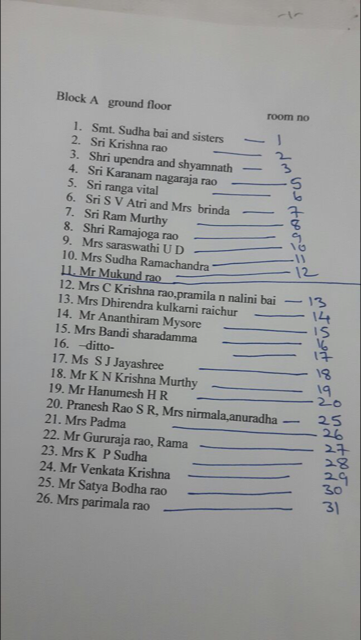 -1-
Block A ground floor room no
1. Smt. Sudha bai and sisters 1
2. Sri Krishna rao 2
3. Shri upendra and shyamnath 3
4. Sri Karanam nagaraja rao 5
5. Sri ranga vital 6
6. Sri S V Atri and Mrs brinda 7
7. Sri Ram Murthy 8
8. Shri Ramajoga rao 9
9. Mrs saraswathi U D 10
10. Mrs Sudha Ramachandra 11
11. Mr Mukund rao 12
12. Mrs C Krishna rao,pramila n nalini bai 13
13. Mrs Dhirendra kulkarni raichur 14
14. Mr Ananthiram Mysore 15
15. Mrs Bandi sharadamma 16
16. –ditto- 17
17. Ms S J Jayashree 18
18. Mr K N Krishna Murthy 19
19. Mr Hanumesh H R 20
20. Pranesh Rao S R, Mrs nirmala,anuradha 25
21. Mrs Padma 26
22. Mr Gururaja rao, Rama 27
23. Mrs K P Sudha 28
24. Mr Venkata Krishna 29
25. Mr Satya Bodha rao 30
26. Mrs parimala rao 31